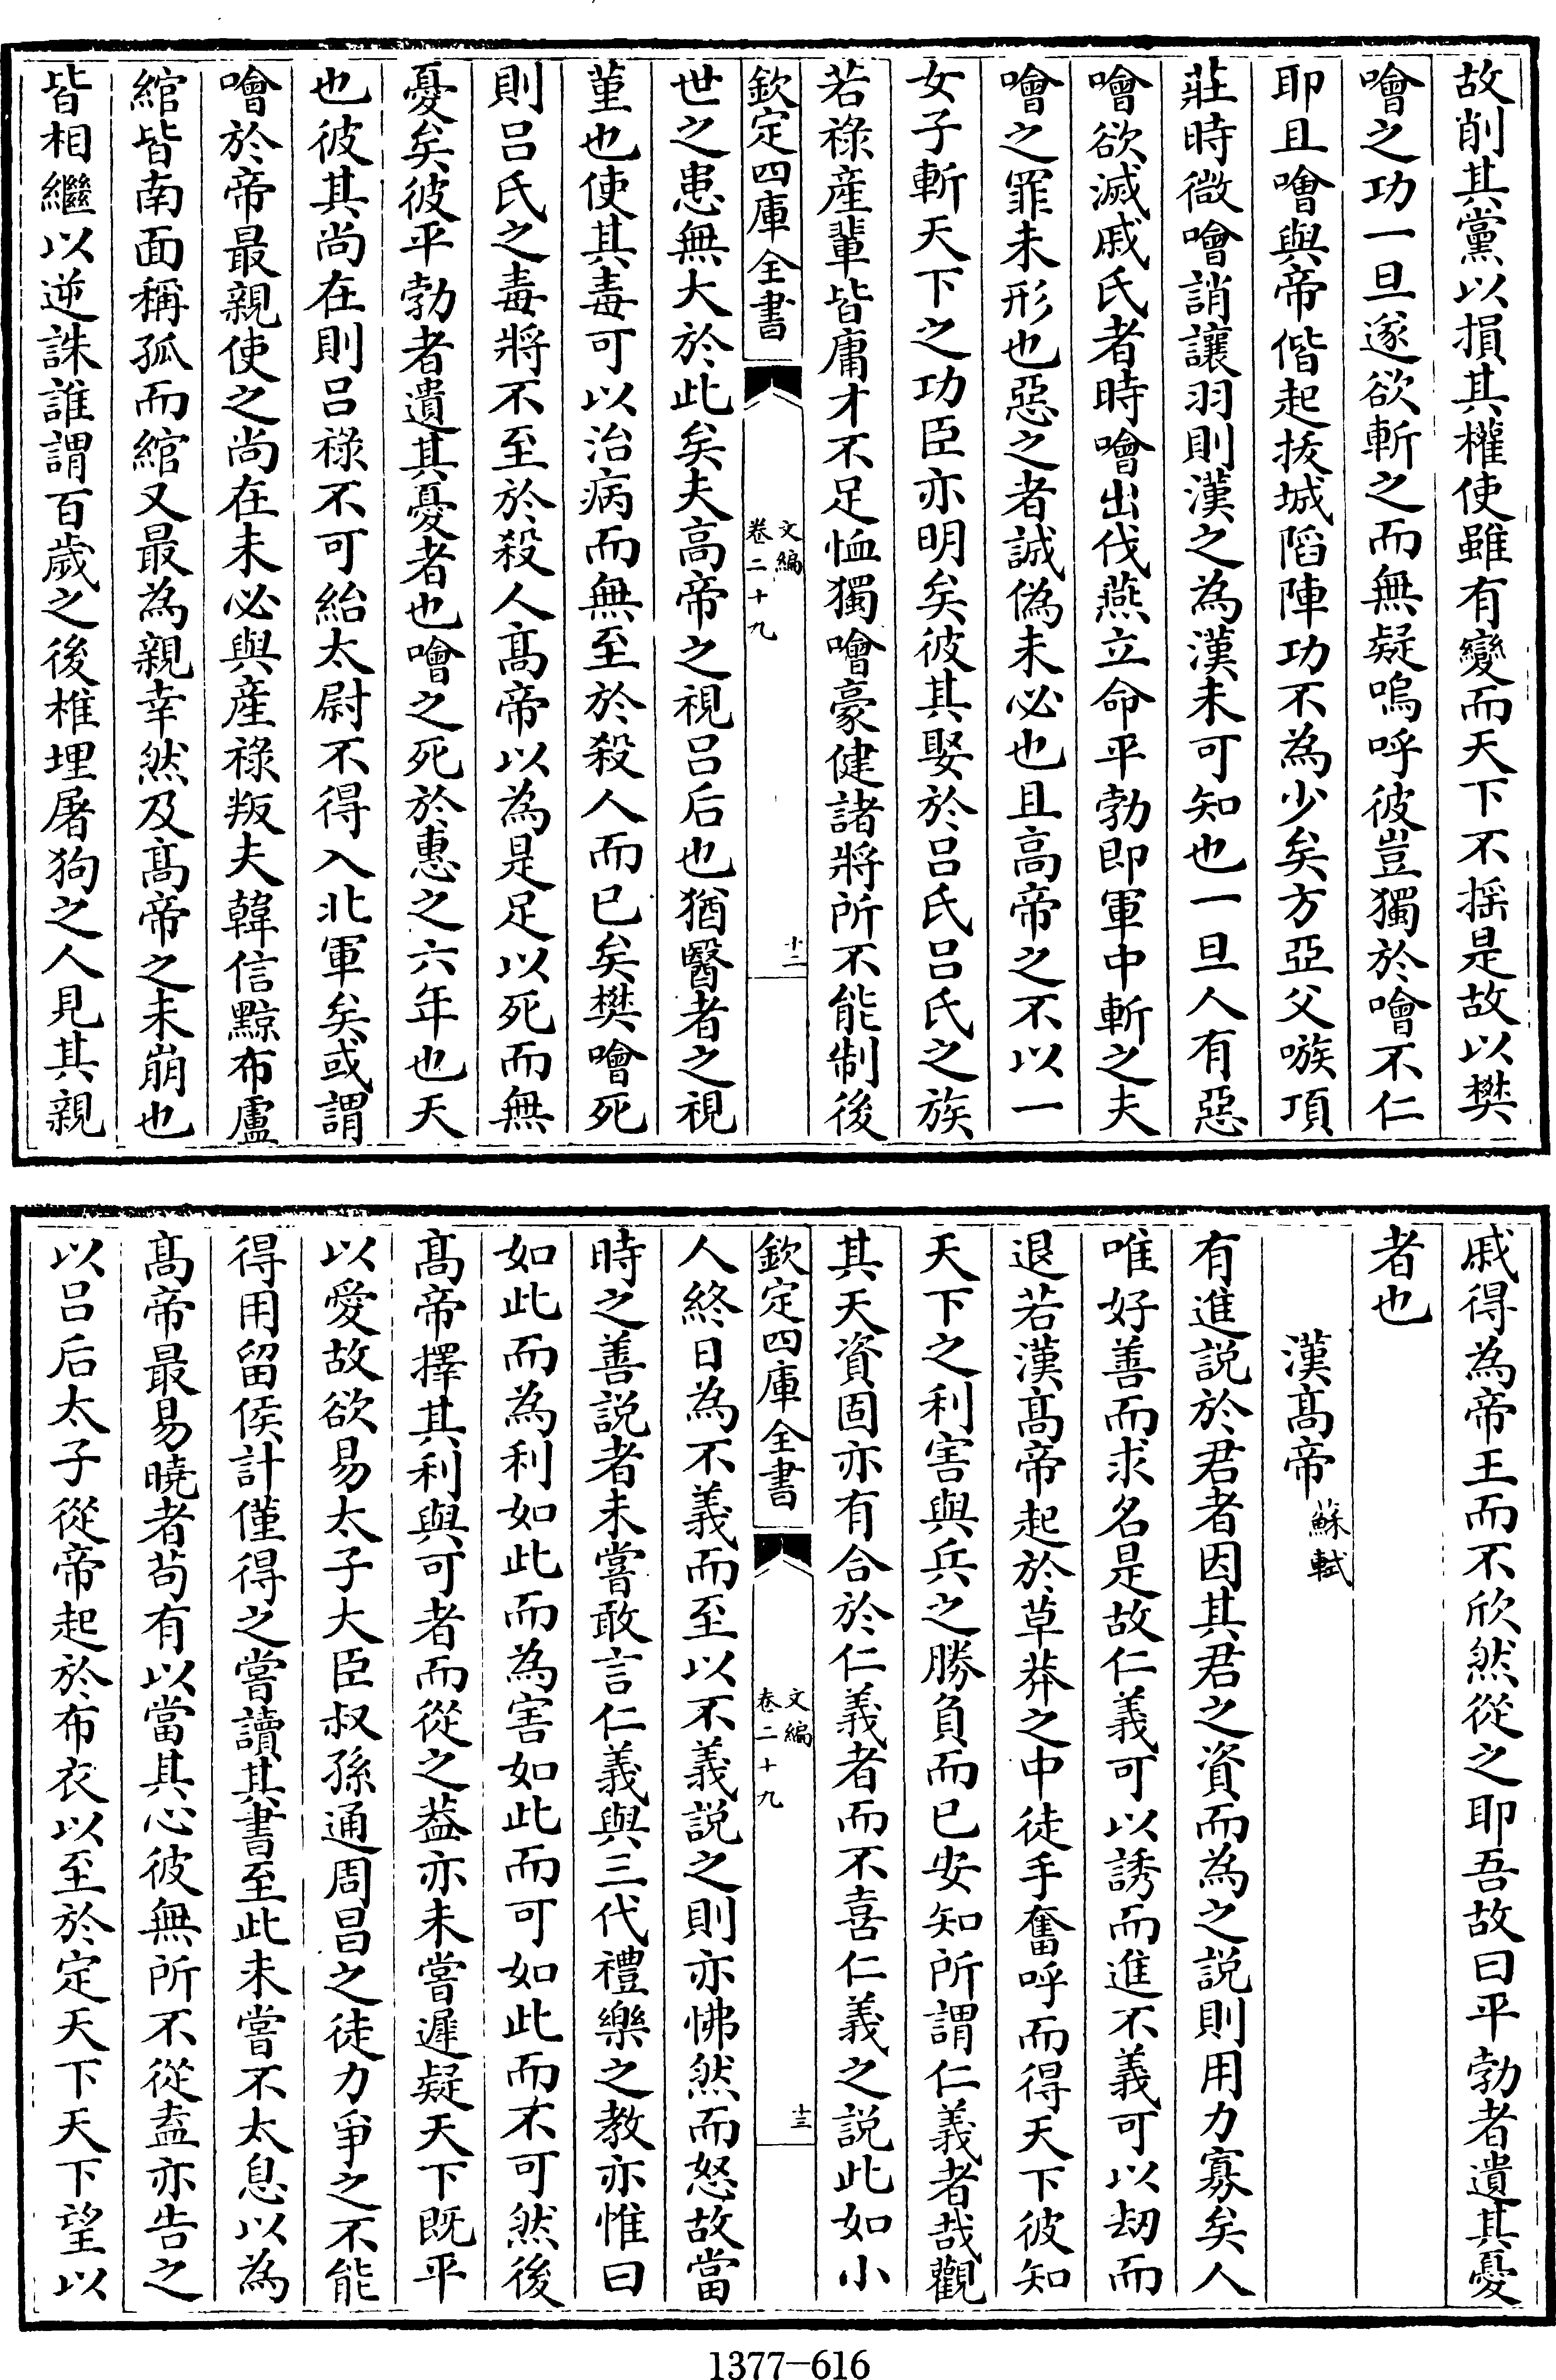 故削其黨以損其權使雖有變而天下不揺是故以樊
噲之功一旦遂欲斬之而無疑嗚呼彼豈獨於噲不仁
耶且噲與帝偕起拔城陷陣功不為少矣方亞父嗾項
莊時微噲誚讓羽則漢之為漢未可知也一旦人有惡
噲欲滅戚氏者時噲出伐燕立命平勃即軍中斬之夫
噲之罪未形也惡之者誠偽未必也且高帝之不以一
女子斬天下之功臣亦明矣彼其娶於呂氏呂氏之族
若祿産輩皆庸才不足恤獨噲豪健諸將所不能制後
欽定四庫全書
文編
卷二十九
十二
世之患無大於此矣夫高帝之視呂后也猶醫者之視
菫也使其毒可以治病而無至於殺人而已矣樊噲死
則呂氏之毒將不至於殺人髙帝以為是足以死而無
憂矣彼平勃者遺其憂者也噲之死於惠之六年也天
也彼其尚在則呂祿不可紿太尉不得入北軍矣或謂
噲於帝最親使之尚在未必與産祿叛夫韓信黥布盧
綰皆南面稱孤而綰又最為親幸然及髙帝之未崩也
皆相繼以逆誅誰謂百歲之後椎埋屠狗之人見其親
戚得為帝王而不欣然從之耶吾故曰平勃者遺其憂
者也
漢髙帝 蘇軾
有進説於君者因其君之資而為之説則用力寡矣人
唯好善而求名是故仁義可以誘而進不義可以刼而
退若漢髙帝起於草莽之中徒手奮呼而得天下彼知
天下之利害與兵之勝負而已安知所謂仁義者哉觀
其天資固亦有合於仁義者而不喜仁義之説此如小
欽定四庫全書
文編
卷二十九
十三
人終日為不義而至以不義説之則亦怫然而怒故當
時之善説者未嘗敢言仁義與三代禮樂之教亦惟曰
如此而為利如此而為害如此而可如此而不可然後
髙帝擇其利與可者而從之葢亦未嘗遲疑天下既平
以愛故欲易太子大臣叔孫通周昌之徒力爭之不能
得用留侯計僅得之嘗讀其書至此未嘗不太息以為
髙帝最易曉者苟有以當其心彼無所不從盍亦告之
以呂后太子從帝起於布衣以至於定天下天下望以
1377-616